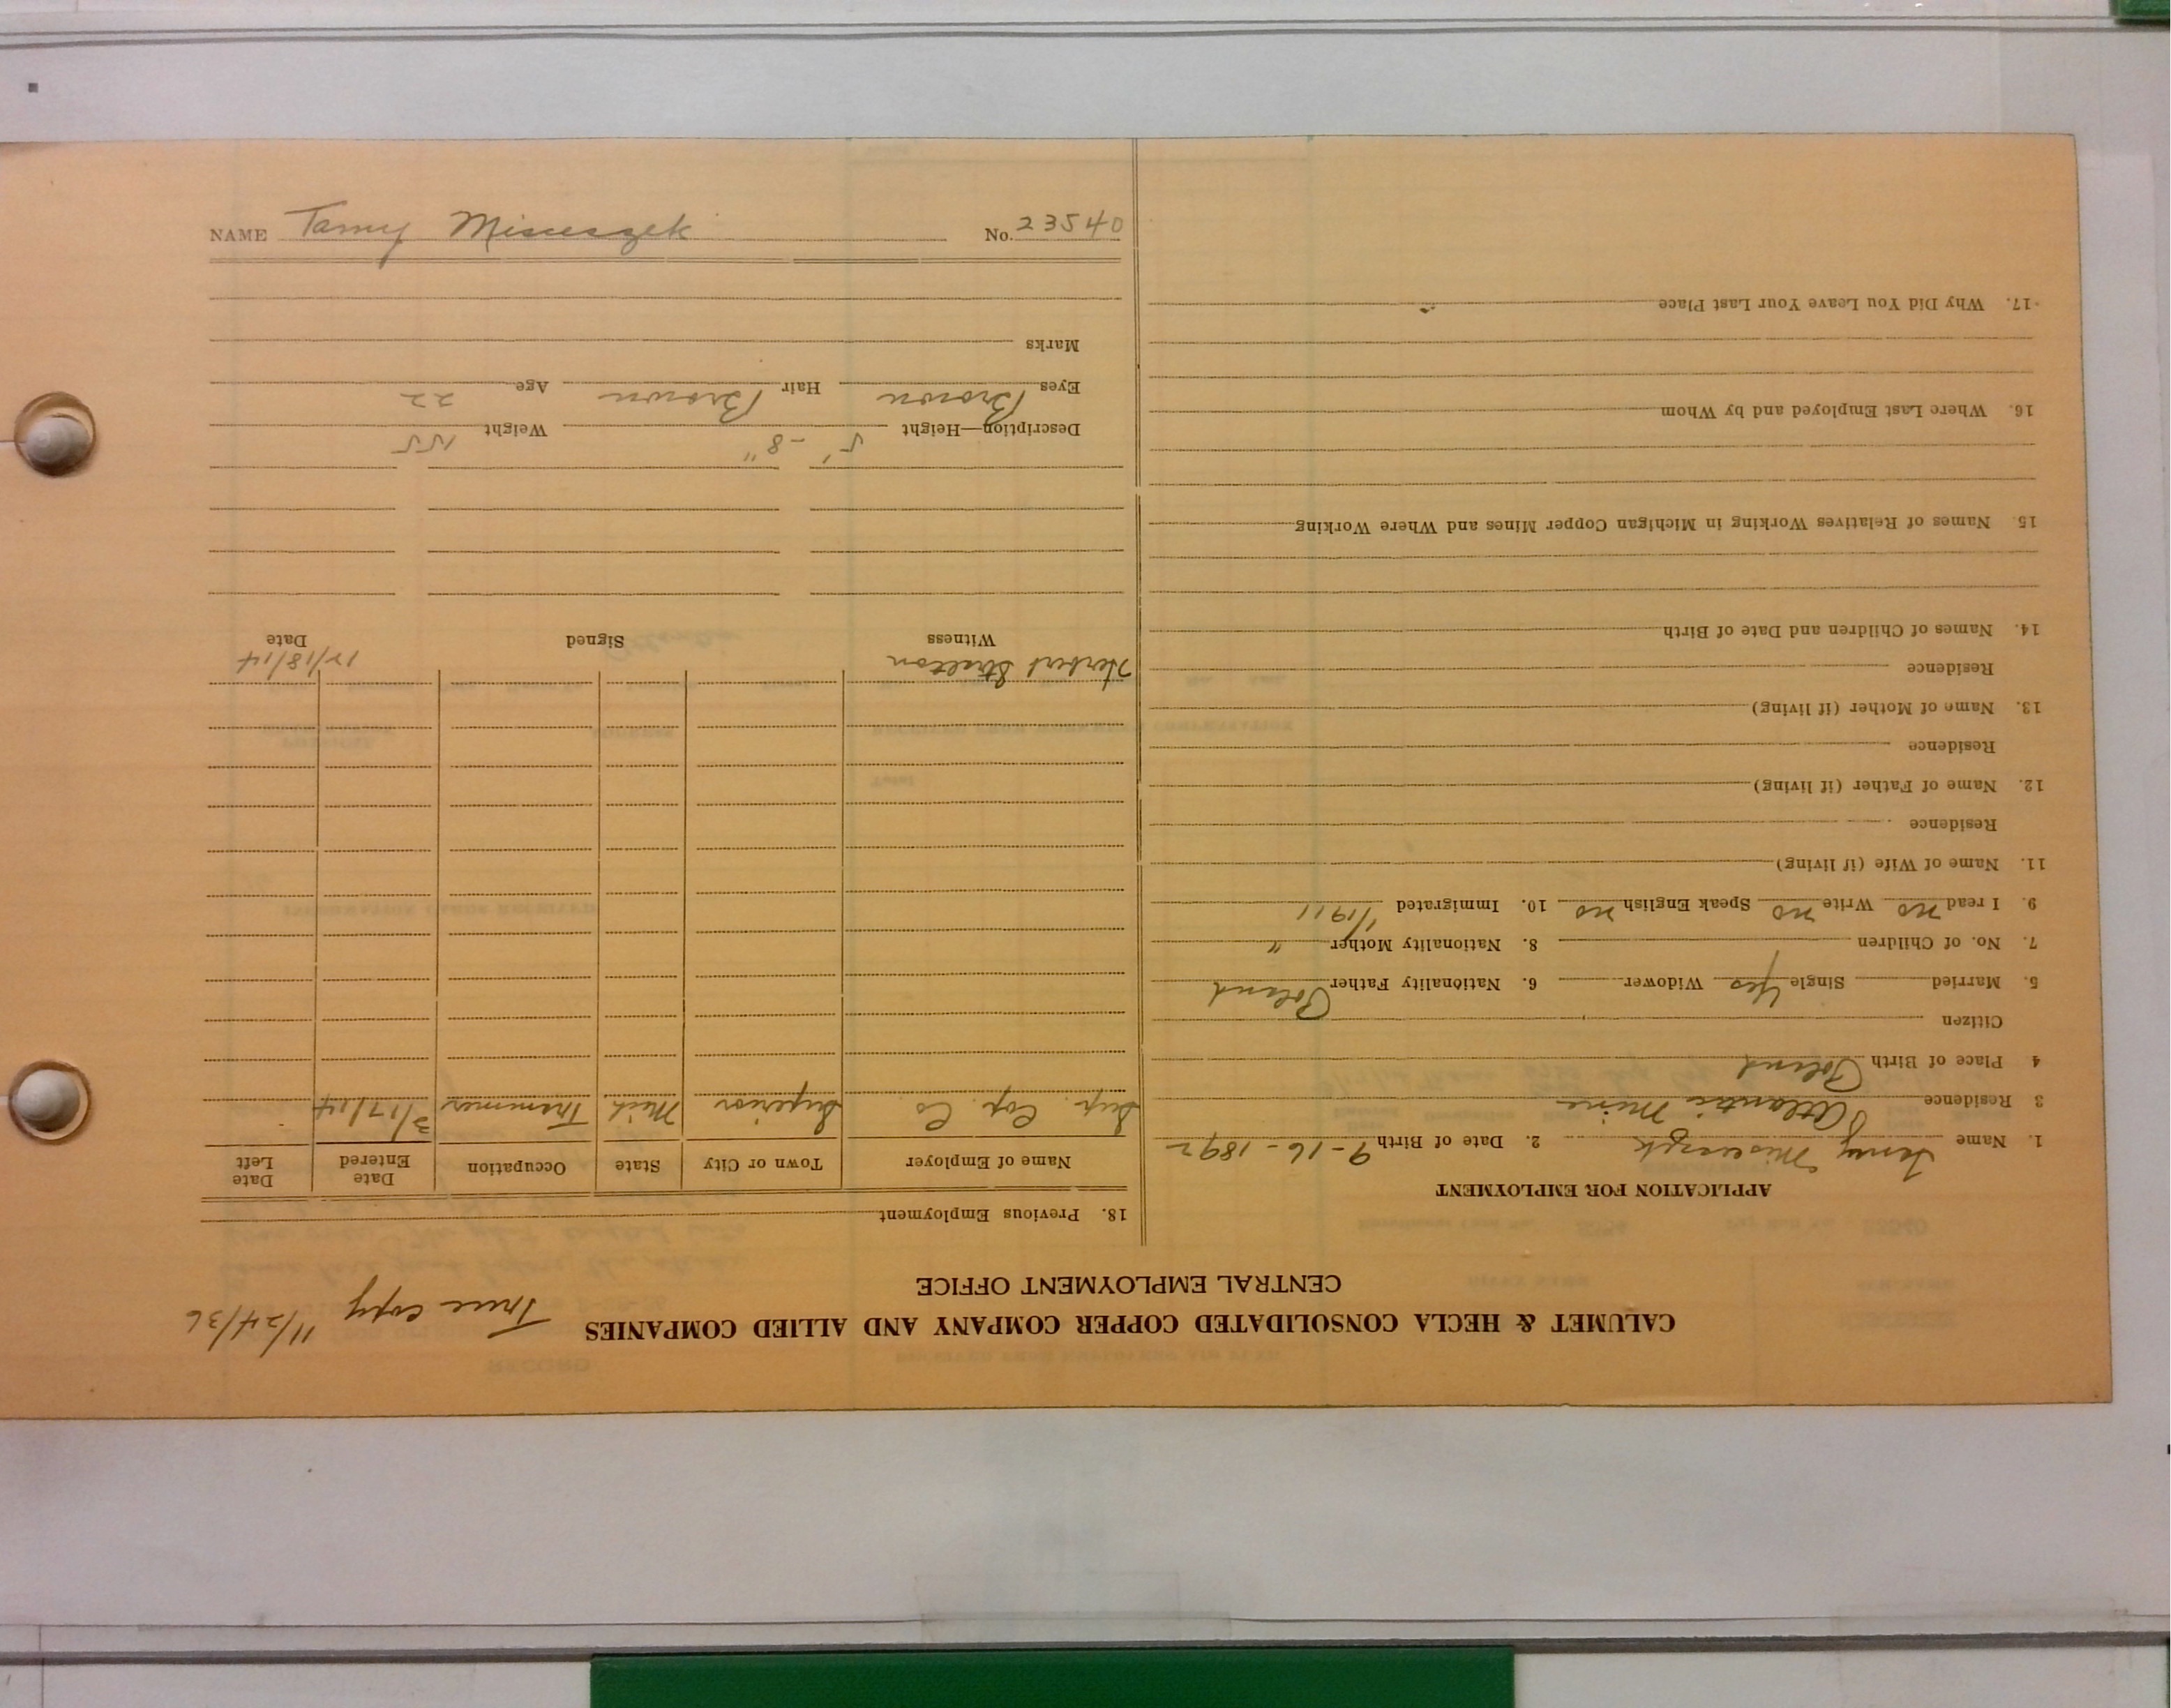 CALUMET & HECLA CONSOLIDATED COPPER COMPANY AND ALLIED COMPANIES
True copy 11/24/36
CENTRAL EMPLOYMENT OFFICE
APPLICATION FOR EMPLOYMENT
1. Name 2. Date of Birth 9-16-1892
3 Residence Atlantic Mine
4 Place of Birth Poland
Citizen
5. Married Single Yes Widower 6. Nationality Father Poland
7. No. of Children 8. Nationality Mother "
9. I read no Write no Speak English no 10. Immigrated 1/1911
11. Name of Wife (if living)
Residence
12. Name of Father (if living)
Residence
13. Name of Mother (if living)
Residence
14. Names of Children and Date of Birth
15. Names of Relatives Working in Michigan Copper Mines and Where Working
16. Where Last Employed and by Whom
17. Why Did You Leave Your Last Place
18. Previous Employment
Name of Employer Town or City State Occupation Date Entered Date Left
Sup. Cop. Co Superior Mich Trammer 3/17/14
Herbert 12/18/14
Witness Signed Date
Description—Height 5'-8" Weight 155
Eyes Brown Hair Brown Age 22
Marks
NAME Tamy No. 23540